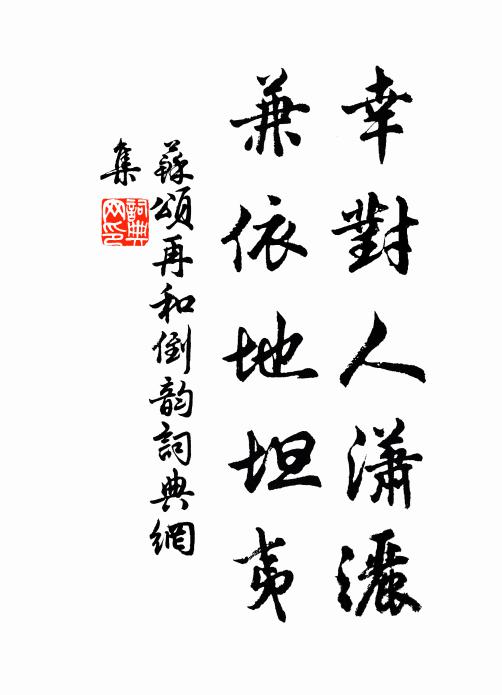 幸對人瀟灑
兼依地坦夷
蘇頌再和倒韵詞典網
集
詞典網印